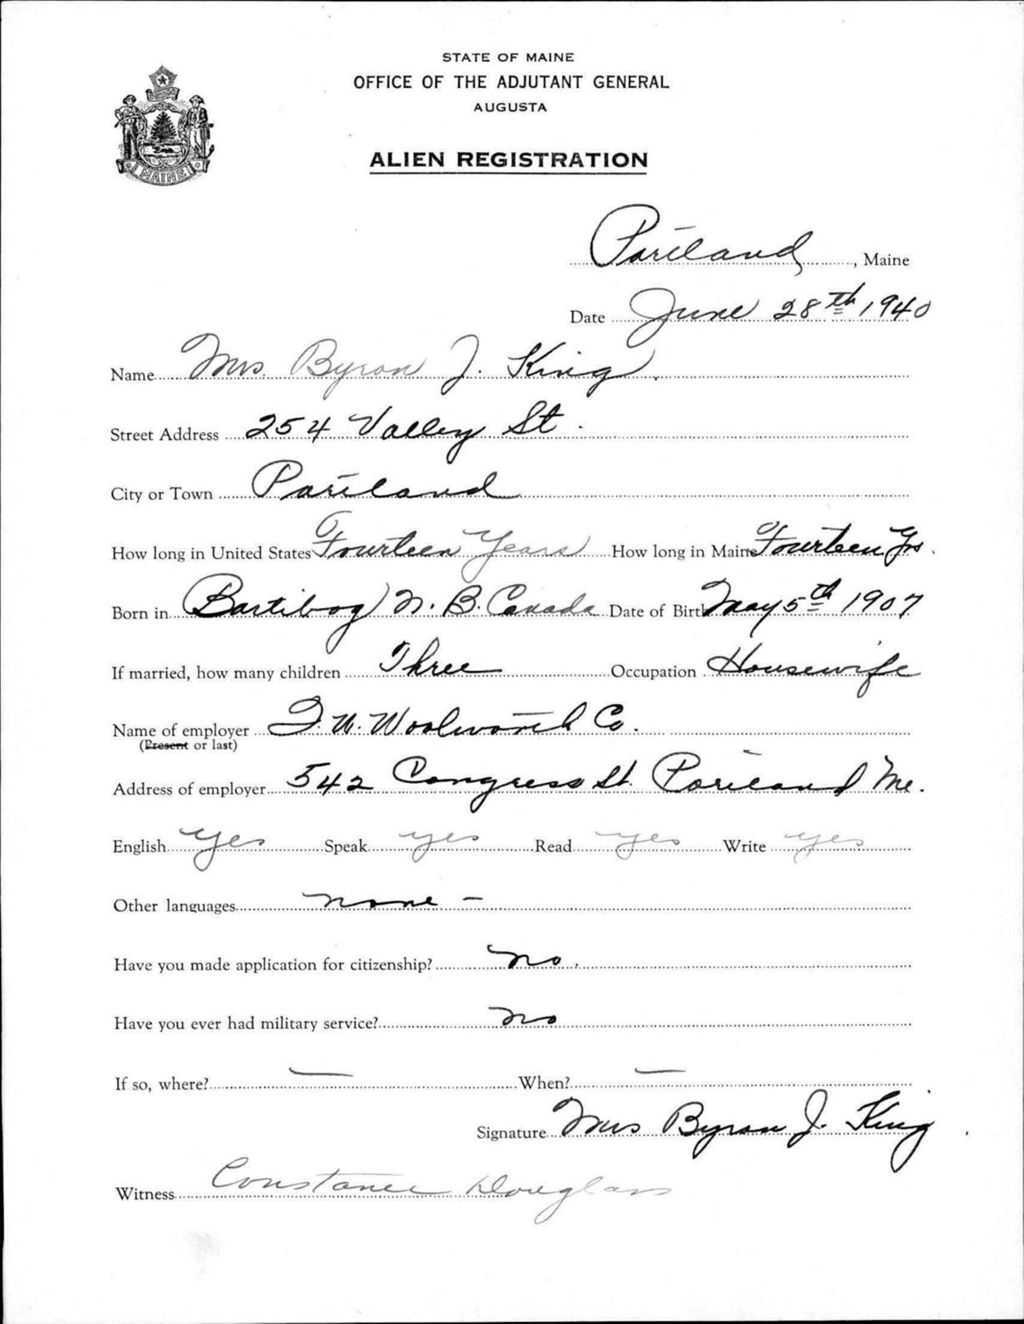 STATE OF MAINE
OFFICE OF THE ADJUTANT GENERAL
AUGUSTA
ALIEN REGISTRATION
MAINE
Portland, Maine
Date June 28th 1940
Name Mrs Byron J. King.
Street Address 254 Valley St.
City or Town Portland
How long in United States Fourteen Years How long in Maine Fourteen Yrs.
Born in Bartibog N. B. Canada Date of Birth May 5th 1907
If married, how many children Three Occupation Housewife
Name of employer F. W. Woolworth Co.
(Present or last)
Address of employer 542 Congress St. Portland Me.
English yes Speak yes Read yes Write yes
Other languages none -
Have you made application for citizenship? No.
Have you ever had military service? No
If so, where? — When? —
Signature Mrs Byron J. King
Witness Constance Douglass